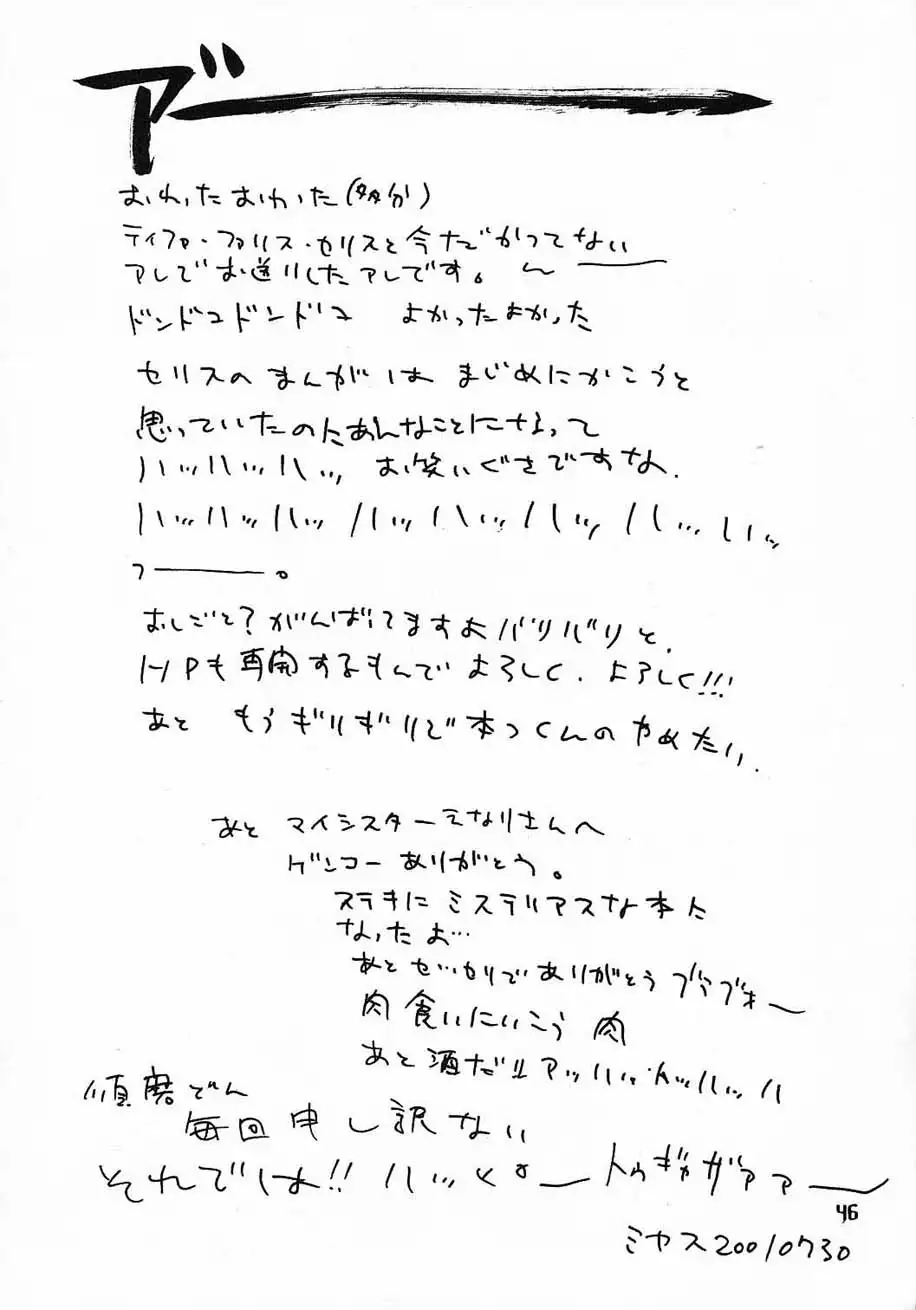 ア゛ー
おわったおわった(多分)
ティファ・ファリス・セリスと今だかつてない
アレでお送りしたアレです。
ドンドコドンドコ よかったよかった
セリスのまんがは まじめにかこうと
思っていたのにあんなことになって
ハッハッハッ お笑いぐさですな.
ハッハッハッ ハッハッハッ ハッハッ
フー。
おしごと?がんばってますよバリバリと.
HPも再開するもんでよろしく.よろしく!!!
あと もうギリギリで本つくんのやめたい.
あと マイシスターえなりさんへ
ゲンコーありがとう。
ステキにミステリアスな本に
なったよ…
あと せっせりでありがとう ブラブォー
肉食いにいこう 肉
あと酒だ!! アッハッハッハッハ
須磨でん
毎回申し訳ない
それでは!! ハッピー トゥギャザァァー
46
ミヤス20010730